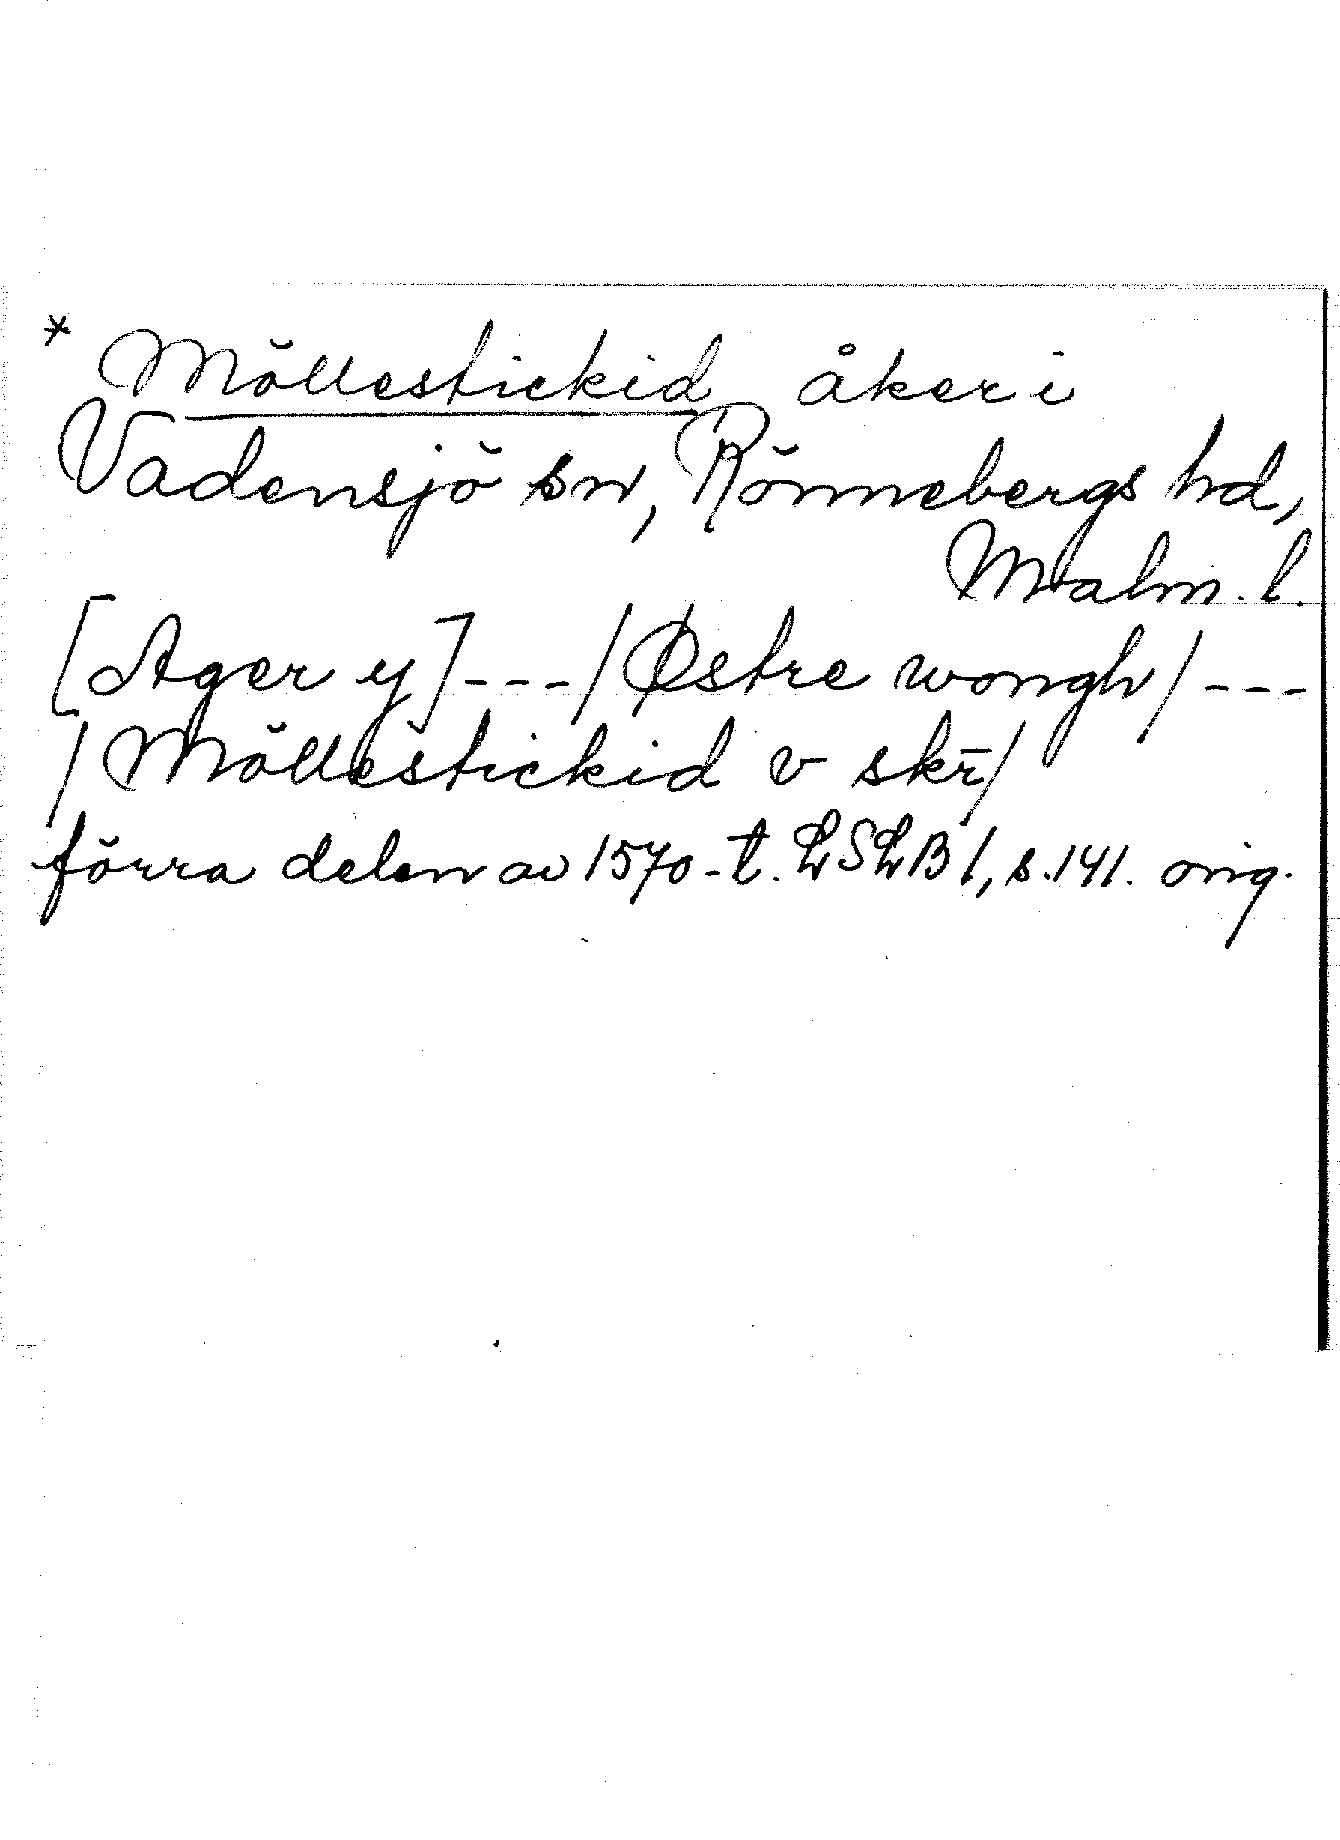 * Möllestickid åker i
Vadensjö sn, Rönnebergs hd,
Malm. l.
[Ager y]---/Østre wongh/---
/Möllestickid v skr̄/
förra delen av 1570-t. LSLB 1, s.141. orig.